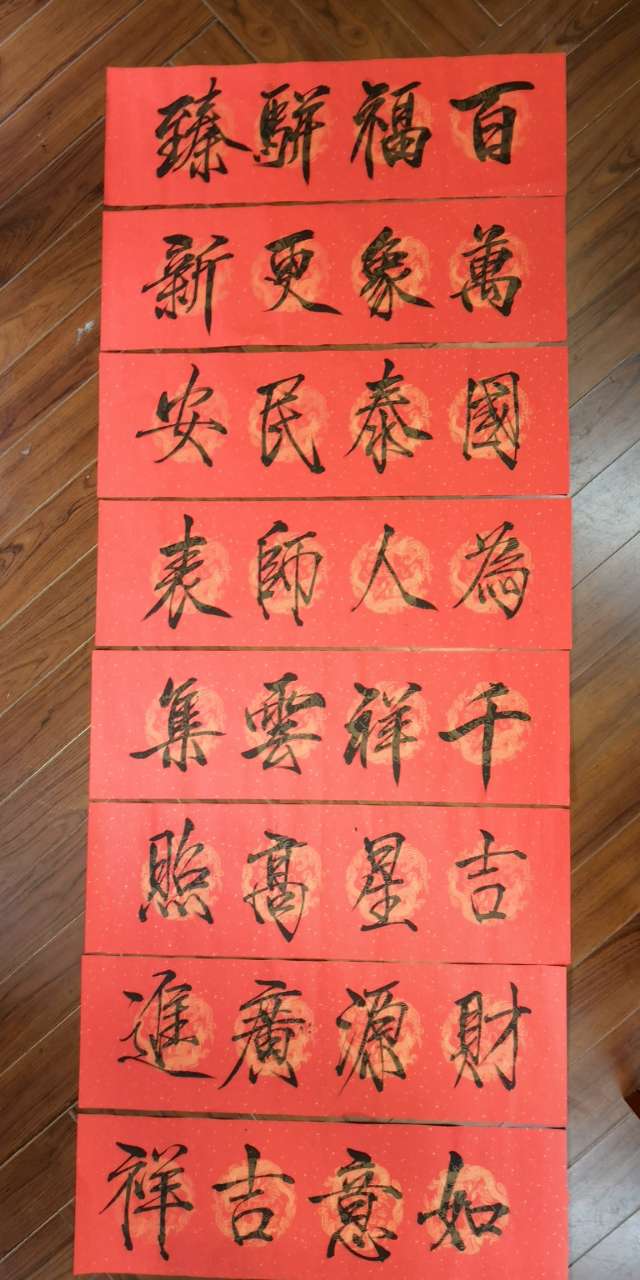 百福駢臻
萬象更新
國泰民安
為人師表
千祥雲集
吉星高照
財源廣進
如意吉祥